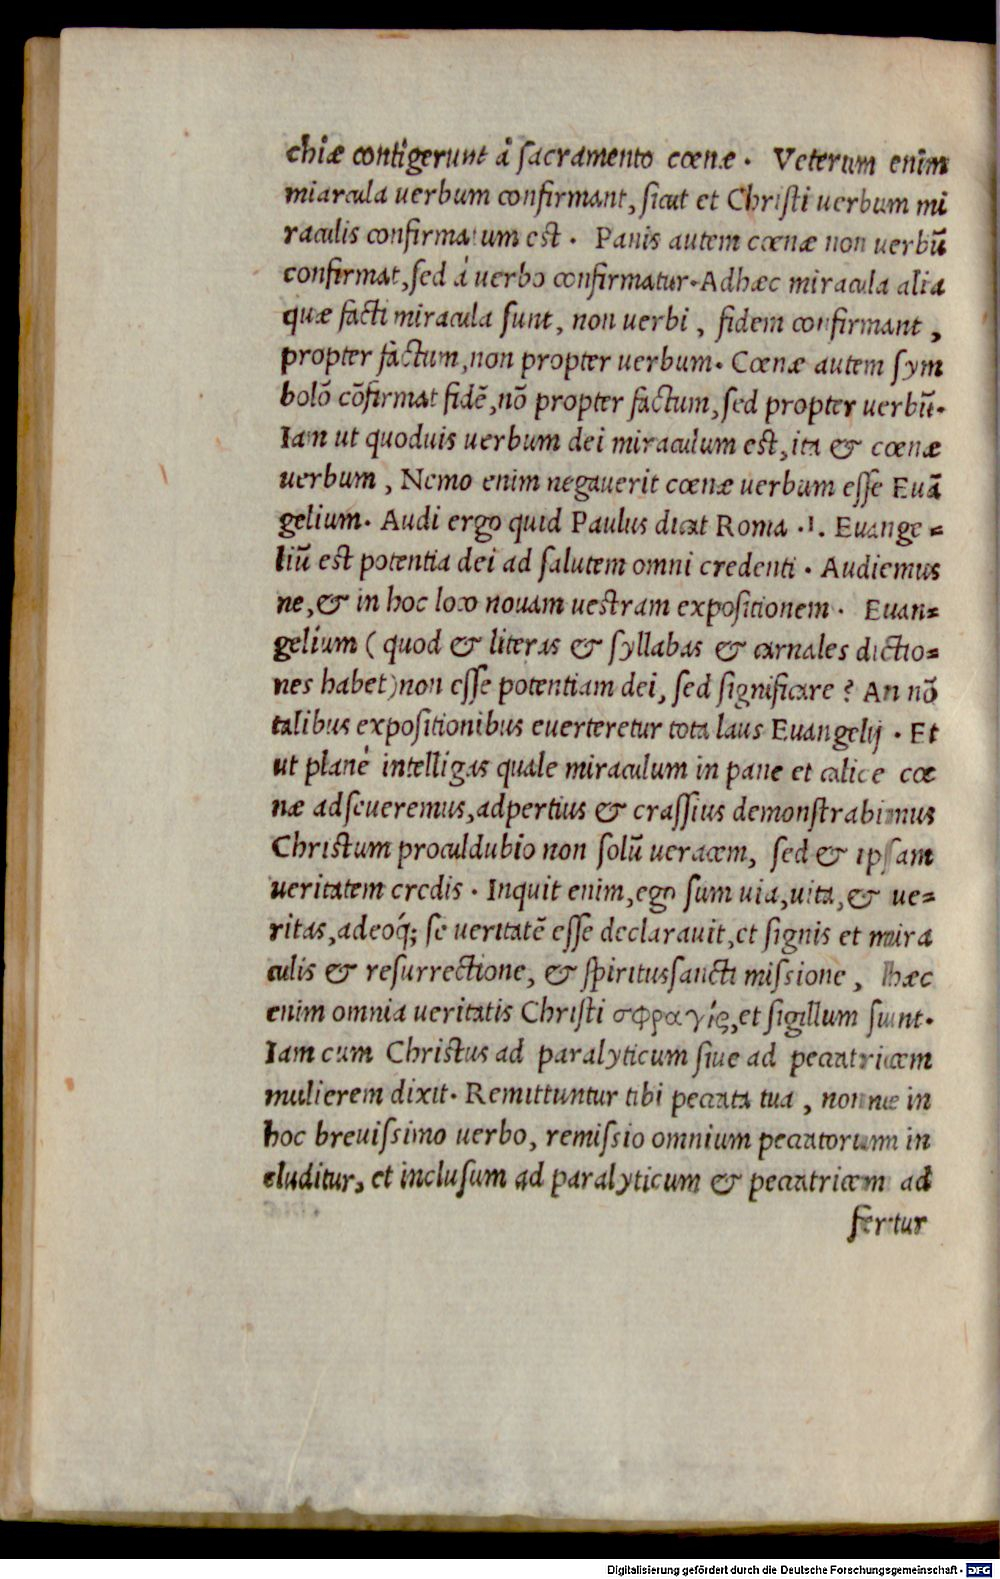 chiæ contigerunt à sacramento cœnæ. Veterum enim
miarcula uerbum confirmant, sicut et Christi uerbum mi
raculis confirmatum est. Panis autem cœnæ non uerbũ
confirmat, sed à uerbo confirmatur. Adhæc miracula alia
quæ facti miracula sunt, non uerbi, fidem confirmant,
propter factum, non propter uerbum. Cœnæ autem sym
bolõ cõfirmat fidẽ, nõ propter factum, sed propter uerbũ.
Iam ut quoduis uerbum dei miraculum est, ita & cœnæ
uerbum, Nemo enim negauerit cœnæ uerbum esse Euã
gelium. Audi ergo quid Paulus dicat Roma .1. Euange=
liũ est potentia dei ad salutem omni credenti. Audiemus
ne, & in hoc loco nouam uestram expositionem. Euan=
gelium ( quod & literas & syllabas & carnales dictio=
nes habet) non esse potentiam dei, sed significare? An nõ
talibus expositionibus euerteretur tota laus Euangelij. Et
ut planè intelligas quale miraculum in pane et calice cœ
næ adseueremus, adpertius & crassius demonstrabimus
Christum proculdubio non solũ ueracem, sed & ipsam
ueritatem credis. Inquit enim, ego sum uia, uita, & ue=
ritas, adeoq́; se ueritatẽ esse declarauit, et signis et mira
culis & resurrectione, & spiritussancti missione, hæc
enim omnia ueritatis Christi σφραγίς, et sigillum sunt.
Iam cum Christus ad paralyticum siue ad peccatricem
mulierem dixit. Remittuntur tibi peccata tua, nonne in
hoc breuissimo uerbo, remissio omnium peccatorum in
cluditur, et inclusum ad paralyticum & peccatricem ad
fertur
Digitalisierung gefördert durch die Deutsche Forschungsgemeinschaft - DFG